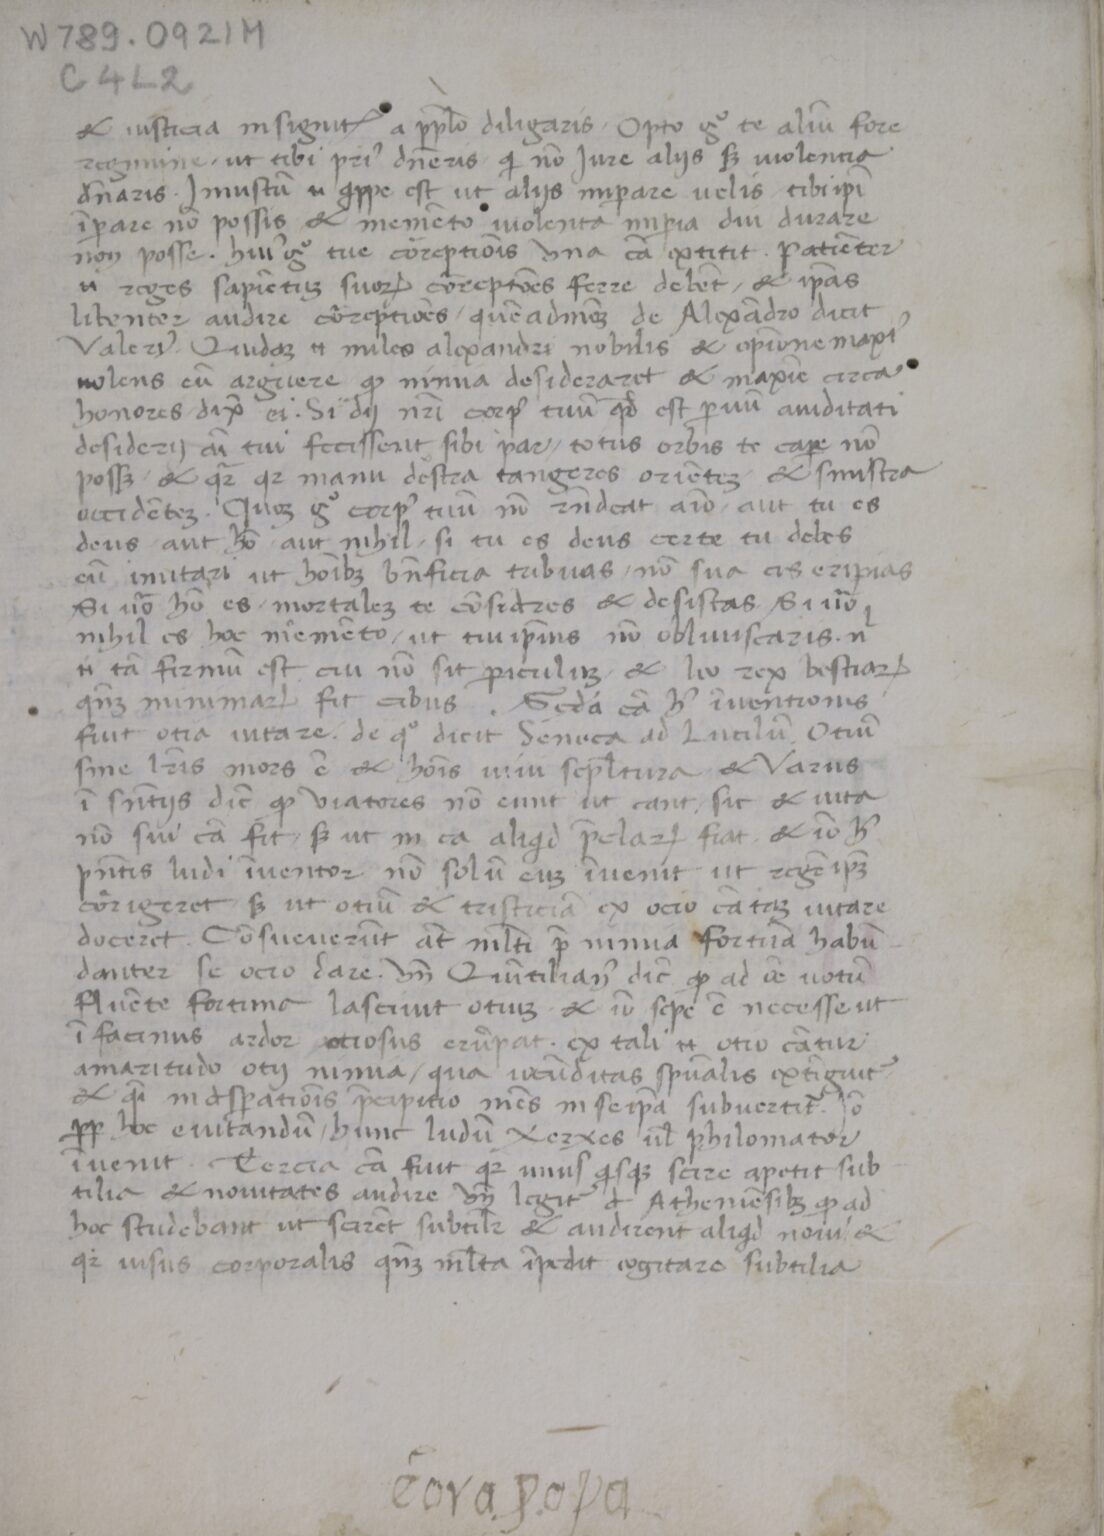 W789.0921M
C4L2
& iusticia insignit᷑ a pp̄lo diligaris. Opto gͦ te aliū fore
regimine, ut tibi pri᷒ dn̄eris qi nō Jure alijs sꝫ uiolentia
dn̄aris. Iniustū n̄ qippe est ut alijs imꝑare uelis tibi ip̄i
īꝑare nō possis & memēto uiolenta imꝑia diu durare
non posse. hui᷒ gͦ tue cōreptiōis una cā extitit. Patiēter
n̄ reges sapiētuꝫ suoꝝ cōreptōes ferre debēt, & ip̄as
libenter audire cōreptiōes, quēadmōꝫ de Alexādro dicit
Valeri᷒. Quidaꝫ n̄ miles alexandri nobilis & opīone maxi᷒
uolens eū arguere qꝫ nimia desideraret & maxīe circa
honores dix̄ ei. Si dij nr̄i corp᷒ tuū qd̄ est ꝑuū auiditati
desiderij aī tui fecissent sibi par, totus orbis te caꝑe nō
possꝫ, & qr̄ qr manu dextra tangeres oriēteꝫ, & sinistra
occidēteꝫ. Quoꝫ gͦ corp᷒ tuū nō rn̄deat aīo, aut tu es
deus aut hō aut nihil, si tu es deus certe tu debes
eū imitari ut hoībꝫ bn̄ficia tribuas, nō sua eis eripias
Si uͦ hō es, mortaleꝫ te cōsideres & desistas, Si uͦ
nihil es hoc memēto, ut tui ip̄ius nō obliuiscaris. nl̄
n̄ tā firmū est cui nō sit ꝑiculuꝫ, & leo rex bestiaꝝ
qn̄ꝫ minimaꝝ fit cibus. Secd̄a cā h᷒ īuentionis
fuit otia uitare. de qͦ dicit Seneca ad Lucilū. Otiū
sine lr̄is mors ē & hoīs uiui sepl̄tura & Varus
ī sn̄tijs dic̄ qꝫ viatores nō eunt ut eant, sic & uita
nō sui cā fit, sꝫ ut in ea aliqid p̄claꝝ fiat. & iō h᷒
pn̄tis ludi īuentor nō solū euꝫ īuenit ut regē ip̄ꝫ
cōrigeret sꝫ ut otiū & tristiciā ex ocio cātaꝫ uitare
doceret. Cōsueuerūt at̄ ml̄ti p̄ nimia fortūa habū
danter se ocio dare. Vn̄ Quītilian᷒ dic̄ qꝫ ad oē uotū
fluēte fortuna lasciuit otiuꝫ & iō sepe ē necesse ut
ī facinus ardor otiosus erūpat. ex tali n̄ otio cātur
amaritudo otij nimia, qua iocūditas spūalis extīguit᷑
& qi in desꝑatiōis p̄cipitio mēs in seip̄a subuertit᷑. Iō
ꝓp̄ hoc euitandū, hunc ludū Xerxes ul̄ philometor
īuenit. Tercia cā fuit qr̄ unusqisqꝫ scire apetit sub
tilia & nouitates audire Vn̄ legit᷑ d̄ Atheniēsibꝫ qꝫ ad
hoc studebant ut scirēt subtilr̄ & audirent aliqid noui &
qr̄ uisus corporalis qn̄ꝫ ml̄ta īpedit cogitare subtilia